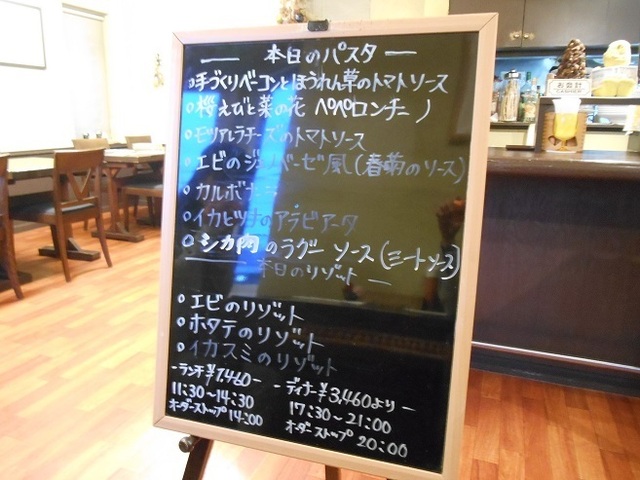 本日のパスタ
手づくりベーコンとほうれん草のトマトソース
桜えびと菜の花 ペペロンチーノ
モッツァレラチーズのトマトソース
エビのジェノベーゼ風(春菊のソース)
カルボナーラ
イカとツナのアラビアータ
シカ肉のラグー ソース(ミートソース)
本日のリゾット
エビのリゾット
ホタテのリゾット
イカスミのリゾット
-ランチ¥1,460-
11:30~14:30
オーダーストップ14:00
-ディナー¥3,460より-
17:30~21:00
オーダーストップ 20:00
お会計